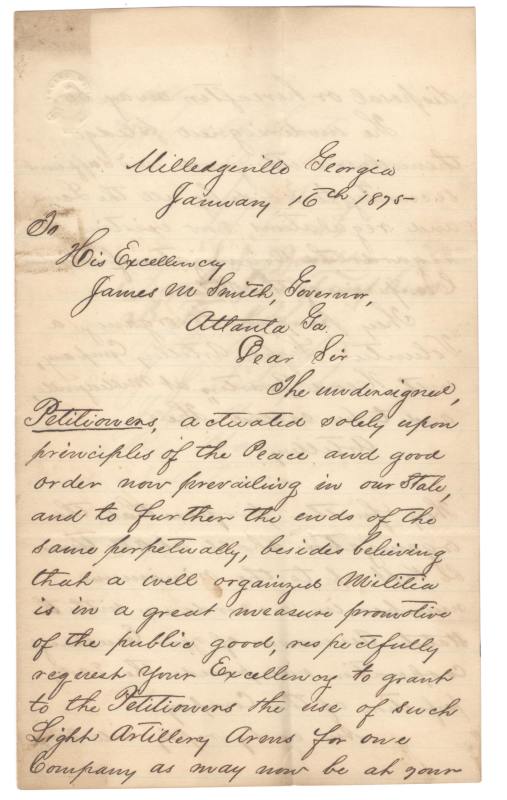 Milledgeville Georgia
January 16th 1875
To
His Excellency
James M Smith, Governor,
Atlanta Ga.
Dear Sir
The undersigned,
Petitioners, actuated solely upon
principles of the Peace and good
order now prevailing in our State,
and to further the ends of the
same perpetually, besides believing
that a well organized Militia
is in a great measure promotive
of the public good, respectfully
request Your Excellency to grant
to the Petitioners the use of such
Light Artillery Arms for one
Company as may now be at your